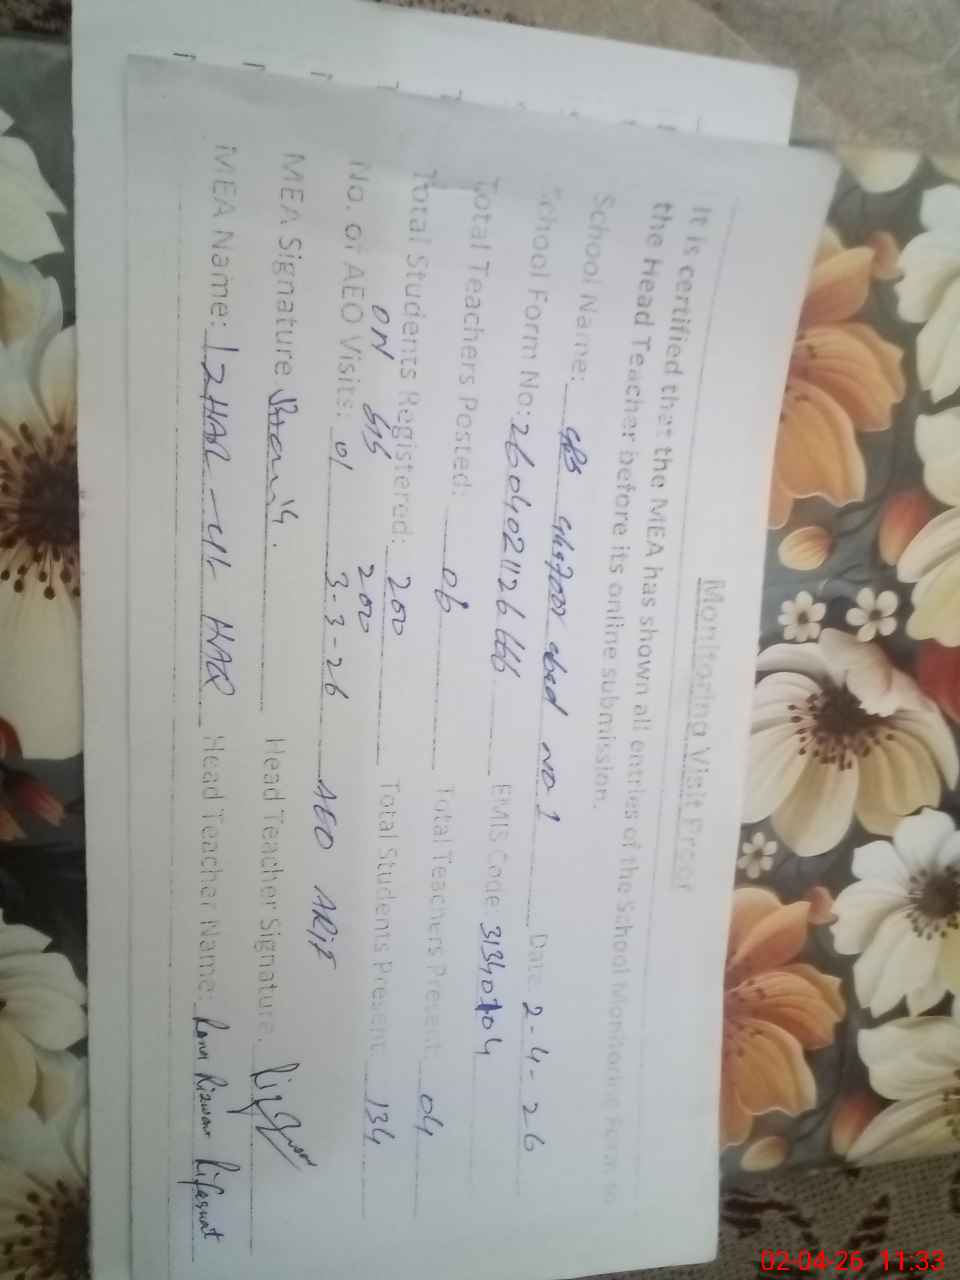 Monitoring Visit Proof
It is certified that the MEA has shown all entries of the School Monitoring Form to
the Head Teacher before its online submission.
School Name: GPS abad NO 1 Date: 2-4-26
School Form No: 2604021126 EMIS Code: 31340104
Total Teachers Posted: 06 Total Teachers Present: 04
Total Students Registered: 200 Total Students Present: 134
ON SIS 200
No. of AEO Visits: 01 3-3-26 AEO ARIF
MEA Signature Head Teacher Signature.
MEA Name: IZHAR-UL-HAQ Head Teacher Name: Rana Rizwan
02-04-26 11:33